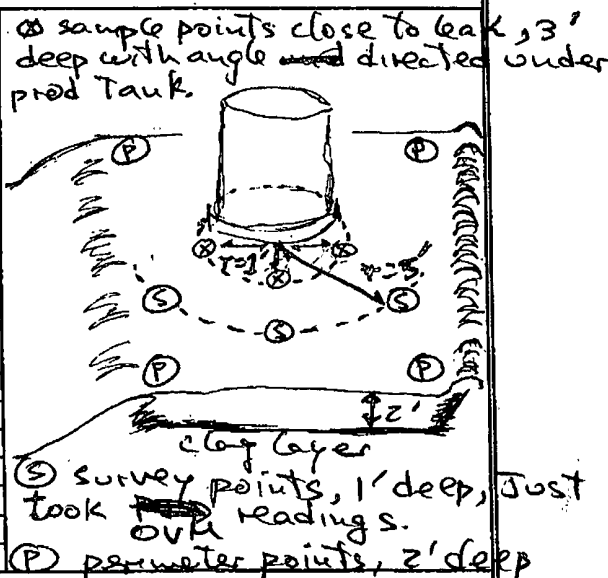 ⓧ sample points close to leak, 3'
deep with angle directed under
prod Tank.
Ⓟ Ⓟ
ⓧ ⓧ
r=1' r=3'
ⓧ
Ⓢ Ⓢ
Ⓢ
Ⓟ Ⓟ
2'
clay layer
Ⓢ survey points, 1' deep, Just
took OVM readings.
Ⓟ perimeter points, 2' deep